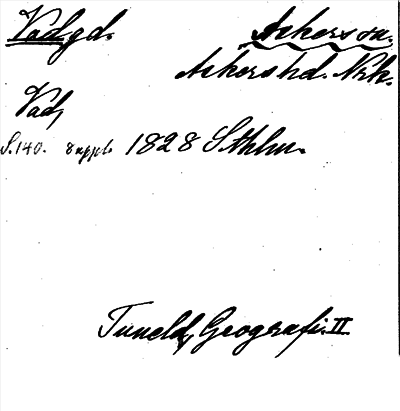 Vad gd. Askers sn.
Askers hd. Nrk.
Vad,
S. 140. 8 uppl. 1828 Sthlm.
Tuneld, Geografi. II